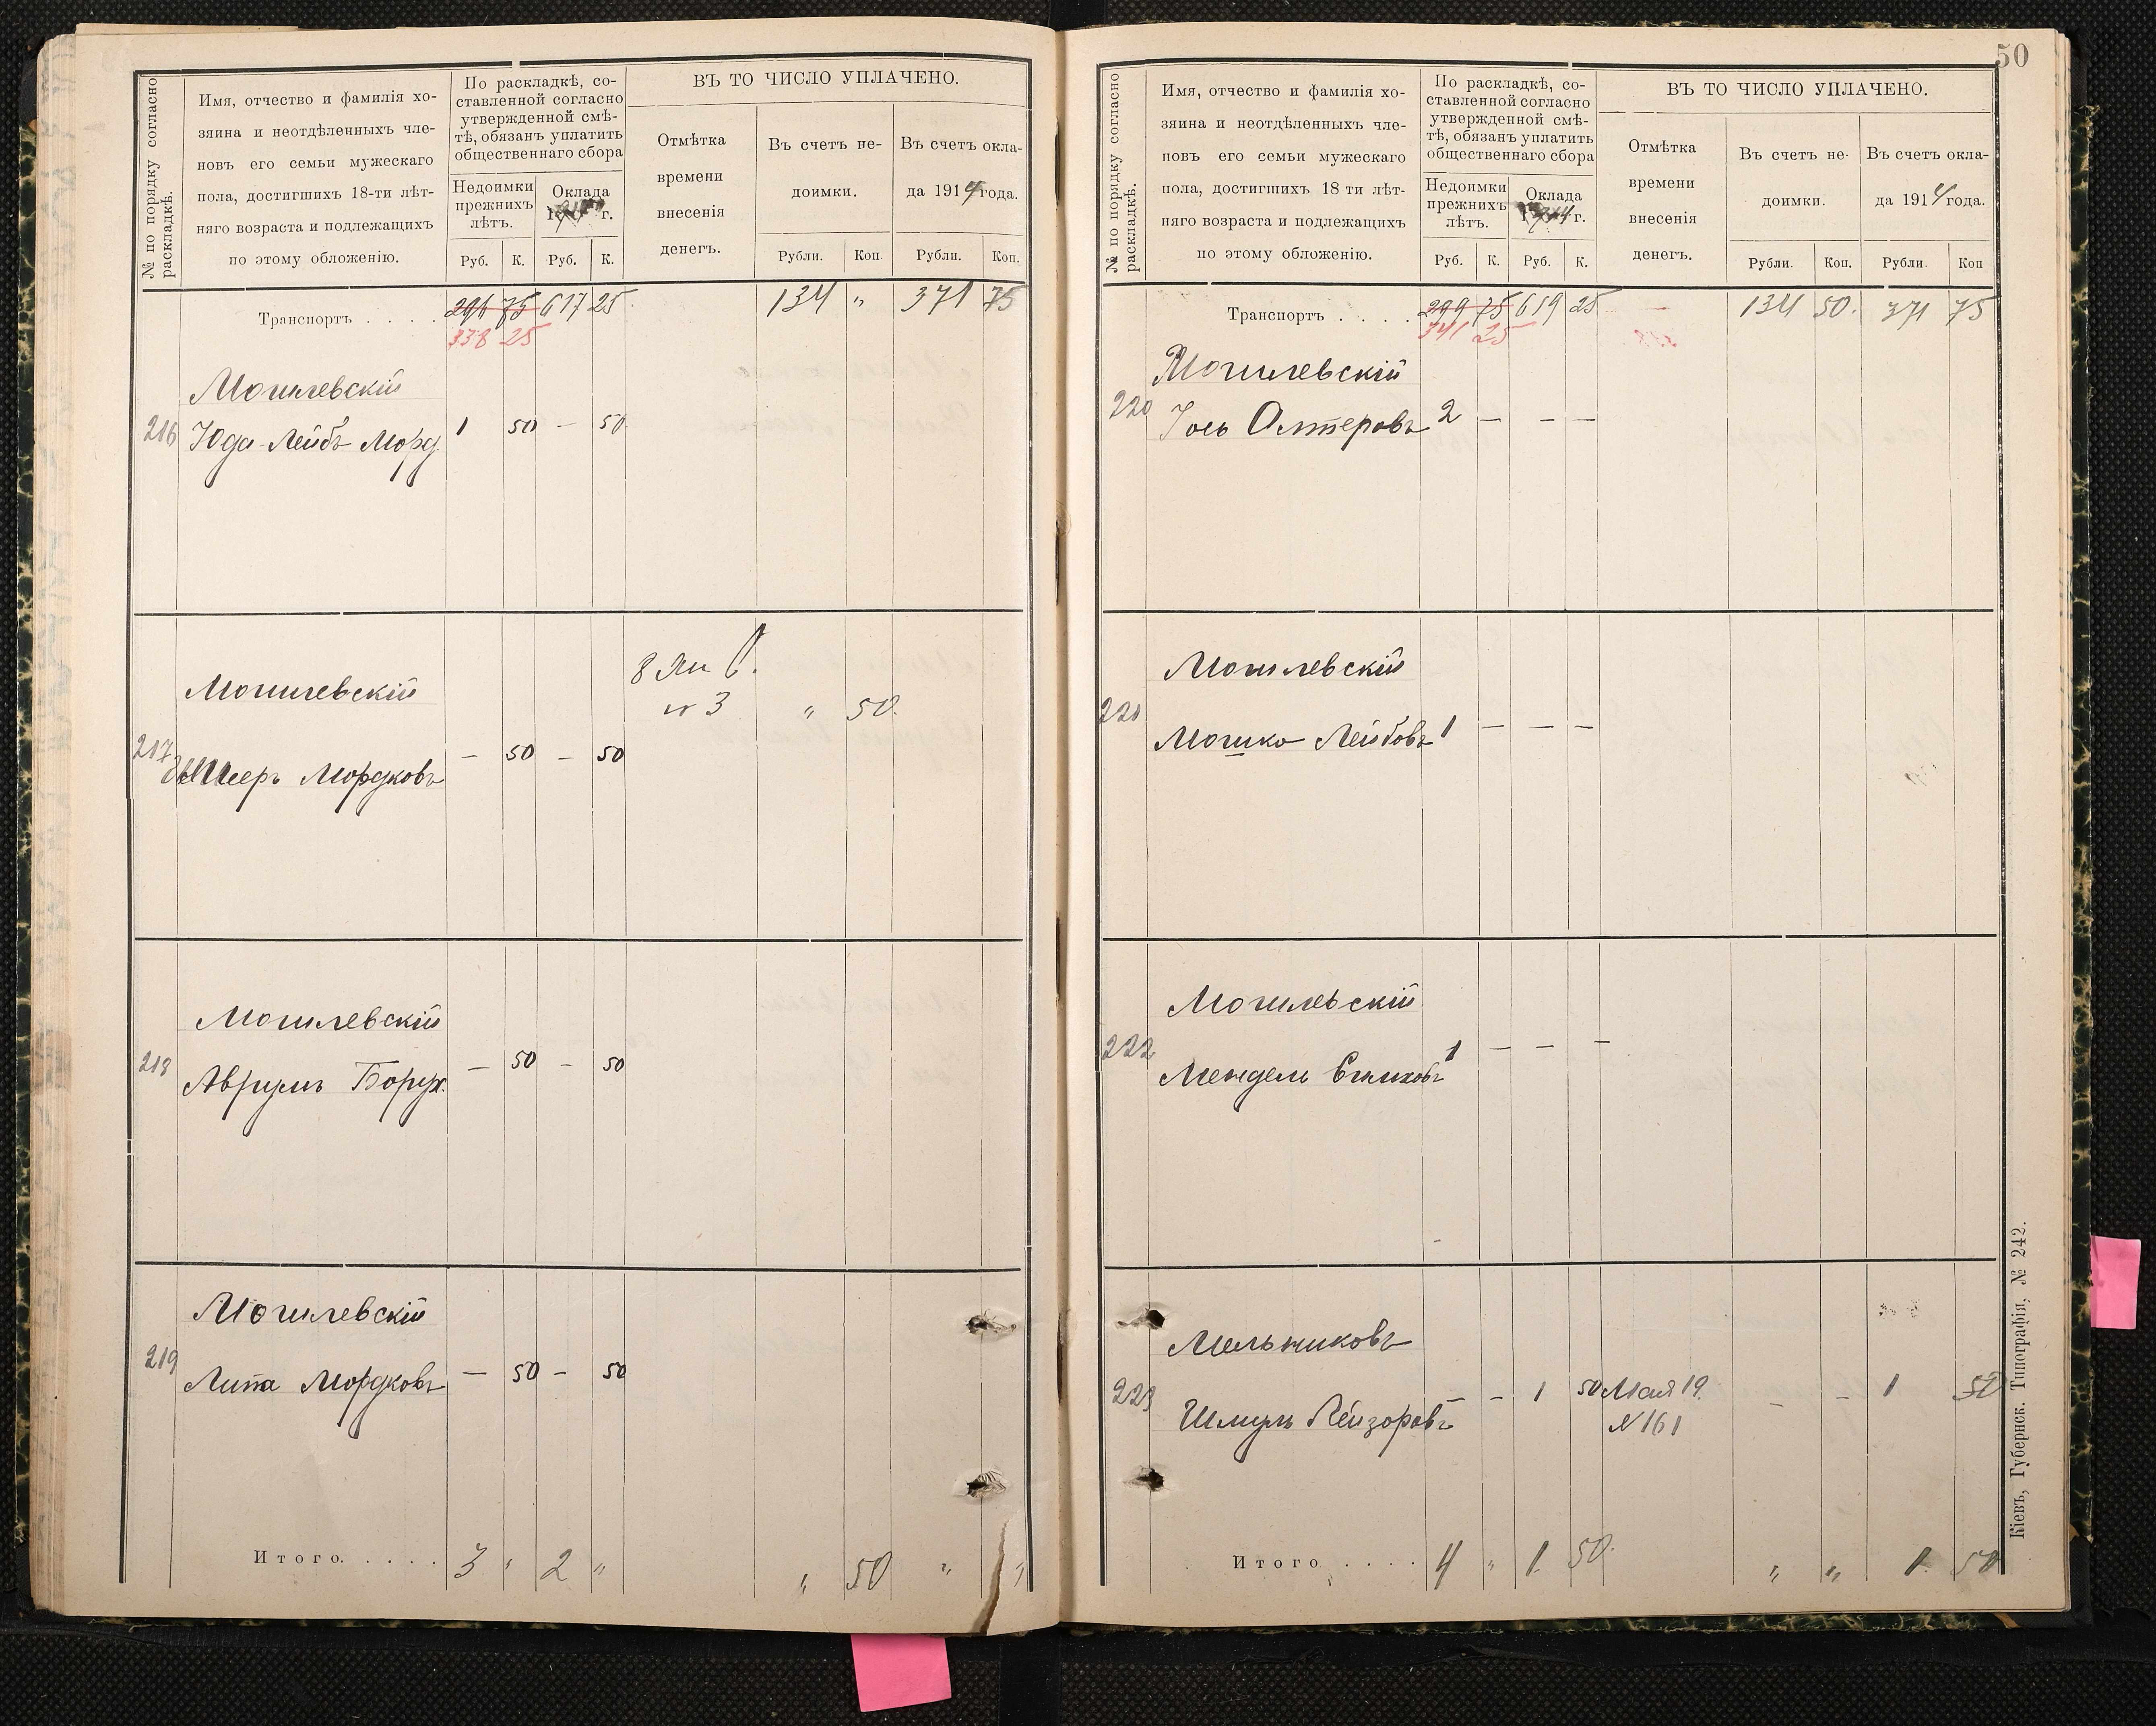 № по порядку согласно
раскладкѣ.
Имя, отчество и фамилія хо-
зяина и неотдѣленныхъ чле-
новъ его семьи мужескаго
пола, достигшихъ 18-ти лѣт-
няго возраста и подлежащихъ
по этому обложенію.
По раскладкѣ, со-
ставленной согласно
утвержденной смѣ-
тѣ, обязанъ уплатить
общественнаго сбора
Недоимки
прежнихъ
лѣтъ.
Оклада
г.
Руб. К. Руб. К.
ВЪ ТО ЧИСЛО УПЛАЧЕНО.
Отмѣтка
времени
внесенія
денегъ.
Въ счетъ не-
доимки.
Въ счетъ окла-
да 1914 года.
Рубли. Коп. Рубли. Коп.
Транспортъ . . . . 296 75 617 25 134 „ 371 75
338 25
Могилевскій
216 Юда-Лейбъ Морд. 1 50 — 50
8 Янв.
№ 3 „ 50.
Могилевскій
217 Шеръ Мордковъ — 50 — 50
Могилевскій
218 Аврумъ Борух. — 50 — 50
Могилевскій
219 Липа Мордковъ — 50 — 50
Итого. . . . . 3 „ 2 „ „ 50 „ „
50
№ по порядку согласно
раскладкѣ.
Имя, отчество и фамилія хо-
зяина и неотдѣленныхъ чле-
новъ его семьи мужескаго
пола, достигшихъ 18 ти лѣт-
няго возраста и подлежащихъ
по этому обложенію.
По раскладкѣ, со-
ставленной согласно
утвержденной смѣ-
тѣ, обязанъ уплатить
общественнаго сбора
Недоимки
прежнихъ
лѣтъ.
Оклада
1914 г.
Руб. К. Руб. К.
ВЪ ТО ЧИСЛО УПЛАЧЕНО.
Отмѣтка
времени
внесенія
денегъ.
Въ счетъ не-
доимки.
Въ счетъ окла-
да 1914 года.
Рубли. Коп. Рубли. Коп
Транспортъ . . . . 299 75 619 25 — 134 50. 371 75
341 25
Могилевскій
220 Іось Олтеровъ 2 — — —
Могилевскій
221 Мошко Лейбовъ 1 — — —
Могилевскій
222 Мендель 1 — — —
Мельниковъ
223 Шмуль Лейзоровъ — — 1 50 Мая 19. — — 1 50
№ 161
Итого . . . . 4 „ 1 50. „ „ 1. 50
Кіевъ, Губернск. Типографія, № 242.